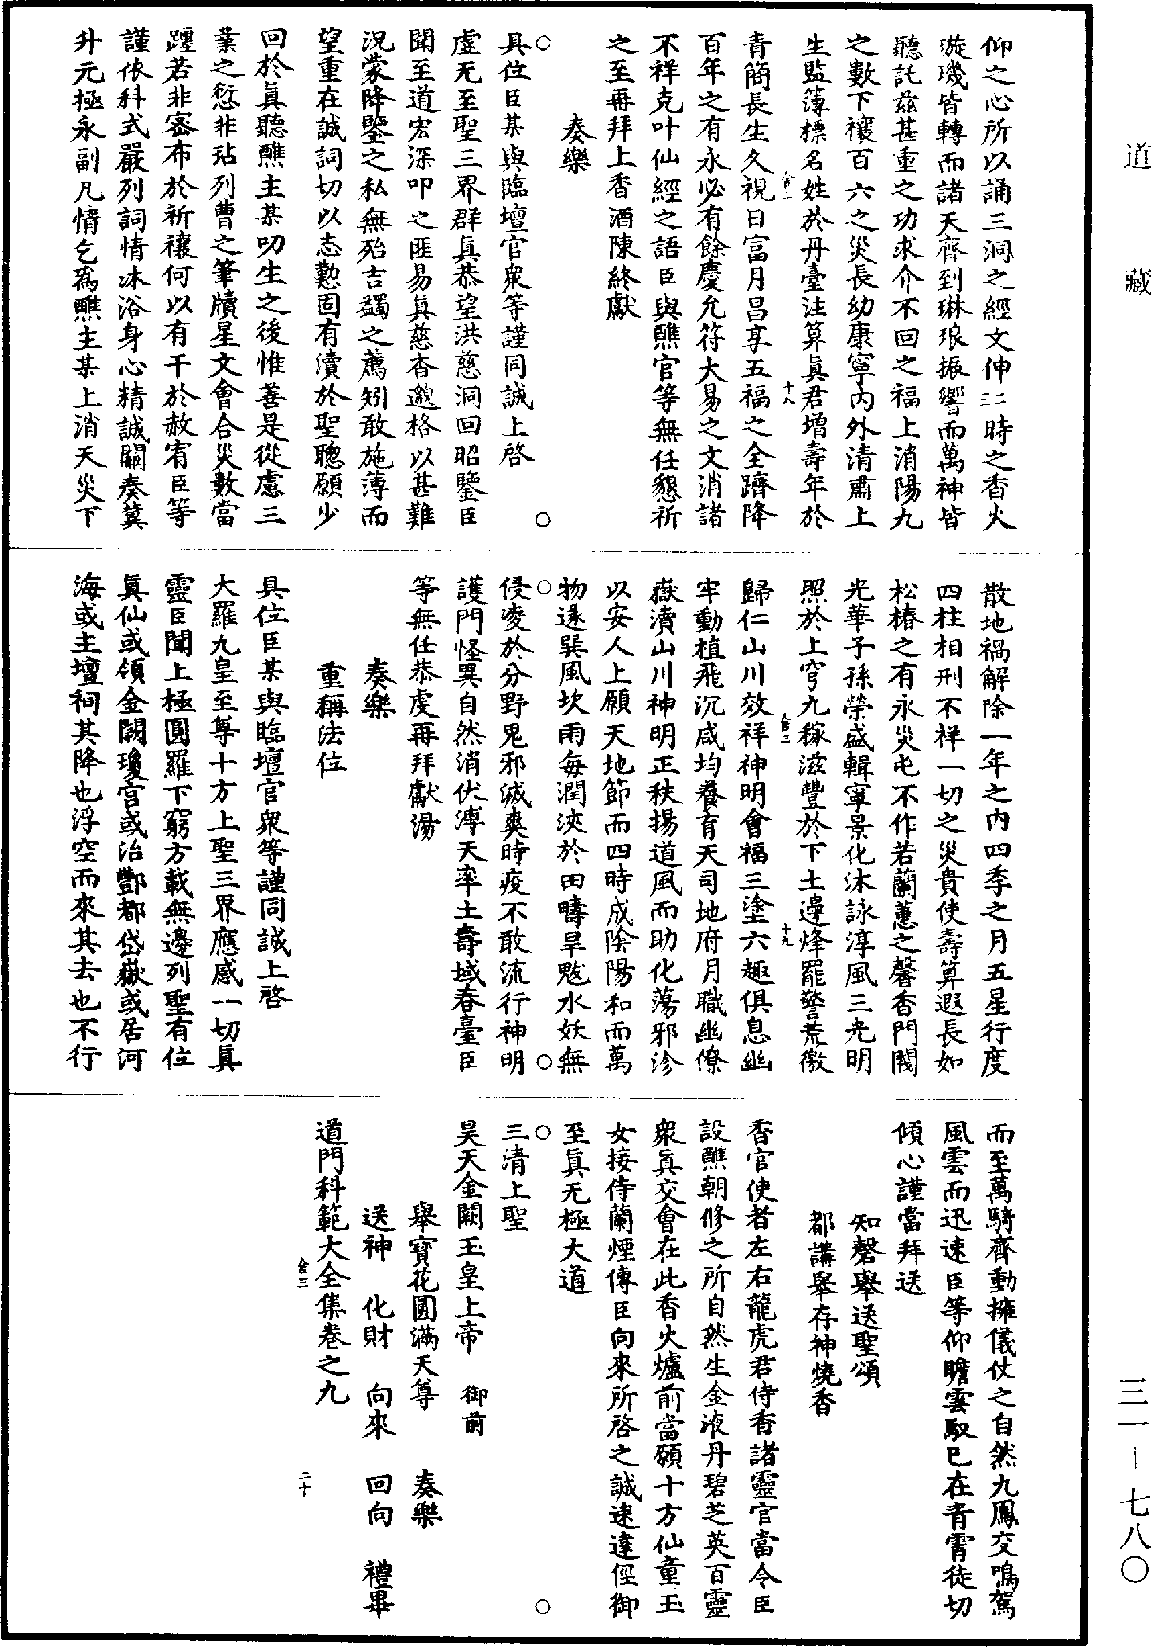 道藏
三一—七八〇
仰之心所以誦三洞之經文伸二時之香火
漩璣皆轉而諸天齊到琳琅振響而萬神皆
聽託兹甚重之功求介不回之福上消陽九
之數下禳百六之災長幼康寧内外清肅上
生監簿標名姓於丹臺注算真君增壽年於
青簡長生久視日富月昌享五福之全躋降
百年之有永必有餘慶允符大易之文消諸
不祥克叶仙經之語臣與醮官等無任懇祈
之至再拜上香酒陳終獻
奏樂
具位臣某與臨壇官衆等謹同誠上啓
虛无至聖三界群真恭望洪慈洞回昭鑒臣
聞至道宏深叩之匪易真慈杳邈格以甚難
況蒙降鑒之私無殆吉蠲之薦矧敢施薄而
望重在誠詞切以志懃固有瀆於聖聰願少
回於真聽醮主某叨生之後惟善是從慮三
業之愆非玷列曹之筆牘星文會合災數當
躔若非密布於祈禳何以有干於赦宥臣等
謹依科式嚴列詞情沐浴身心精誠關奏冀
升元極永副凡情乞爲醮主某上消天災下
散地禍解除一年之内四季之月五星行度
四柱相刑不祥一切之災貴使壽算遐長如
松椿之有永災屯不作若蘭蕙之馨香門闌
光華子孫榮盛輯寧景化沐詠淳風三光明
照於上穹九稼滋豐於下土邊烽罷警荒徼
歸仁山川效祥神明會福三塗六趣俱息幽
牢動植飛沉咸均養育天司地府月職幽僚
嶽瀆山川神明正秩揚道風而助化蕩邪沴
以安人上願天地節而四時成陰陽和而萬
物遂巽風坎雨每潤浹於田疇旱魃水妖無
侵凌於分野鬼邪滅爽時疫不敢流行神明
護門怪異自然消伏溥天率土壽域春臺臣
等無任恭虔再拜獻湯
奏樂
重稱法位
具位臣某與臨壇官衆等謹同誠上啓
大羅九皇至尊十方上聖三界應感一切真
靈臣聞上極圓羅下窮方載無邊列聖有位
真仙或領金闕瓊宫或治酆都岱嶽或居河
海或主壇祠其降也浮空而來其去也不行
而至萬騎齊動擁儀仗之自然九鳳交鳴駕
風雲而迅速臣等仰瞻雲馭已在青霄徒切
傾心謹當拜送
知磬舉送聖頌
都講舉存神燒香
香官使者左右龍虎君侍香諸靈官當令臣
設醮朝修之所自然生金液丹碧芝英百靈
衆真交會在此香火爐前當願十方仙童玉
女接侍蘭煙傳臣向來所啓之誠速達徑御
至真无極大道
三清上聖
昊天金闕玉皇上帝 御前
舉寶花圓滿天尊 奏樂
送神 化財 向來 回向 禮畢
道門科範大全集卷之九
二十